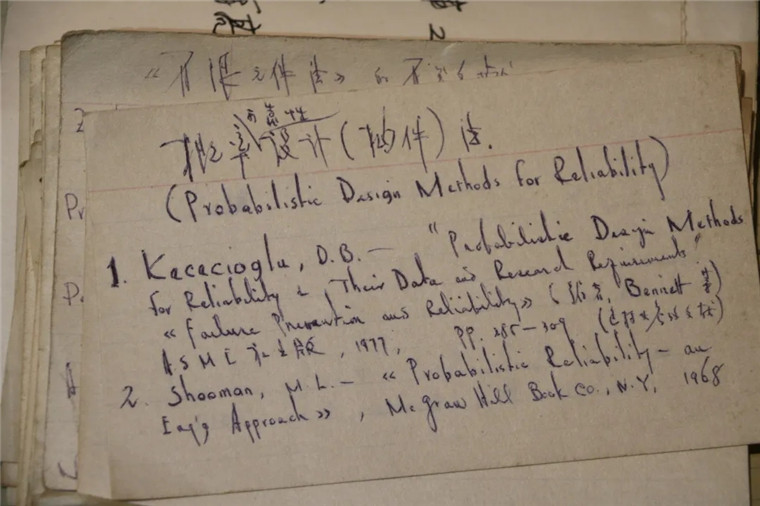 《有限元件法》的
可靠性
概率设计(构件)法.
(Probabilistic Design Methods for Reliability)
1. Kececioglu, D.B. — "Probabilistic Design Methods
for Reliability & Their Data and Research Requirements"
《Failure Prevention and Reliability》(编者, Bennett 等)
ASME 出版, 1977, pp. 285—309
2. Shooman, M.L. — 《Probabilistic Reliability — an
Eng'g Approach》, McGraw Hill Book Co., N.Y. 1968